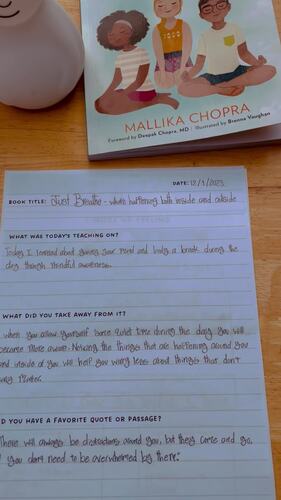 MALLIKA CHOPRA
Foreword by Deepak Chopra, MD | Illustrated by Brenna Vaughan
DATE: 12/1/2023
BOOK TITLE: Just Breathe - whats happening both inside and outside
WHAT WAS TODAY'S TEACHING ON?
Today I learned about giving your mind and body a break during the
day through mindful awareness.
WHAT DID YOU TAKE AWAY FROM IT?
when you allow yourself some quiet time during the day you will
become more aware. Noticing the things that are happening around you
and inside of you will help you worry less about things that don't
really matter.
DO YOU HAVE A FAVORITE QUOTE OR PASSAGE?
There will always be distractions around you, but they come and go,
you don't need to be overwhelmed by them."